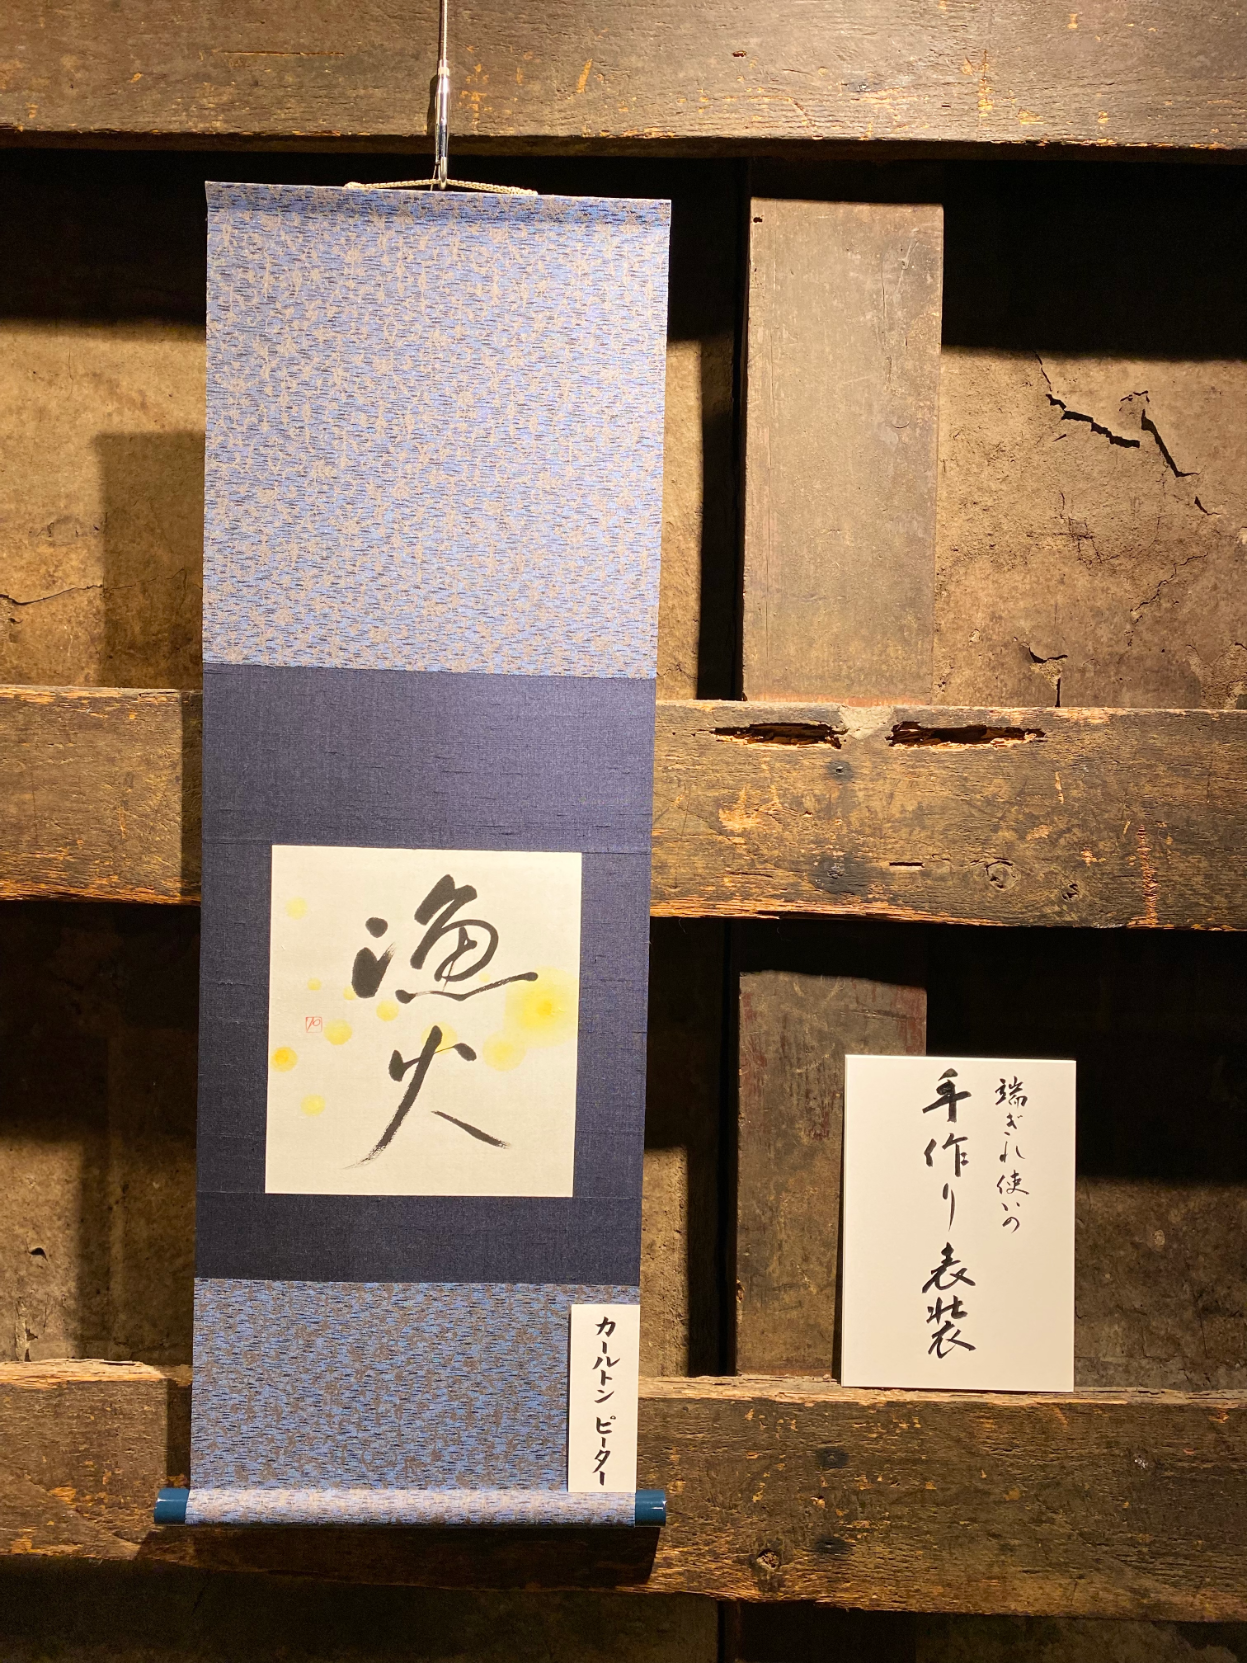 漁火
カールトン ピーター
端ぎれ使いの
手作り表装